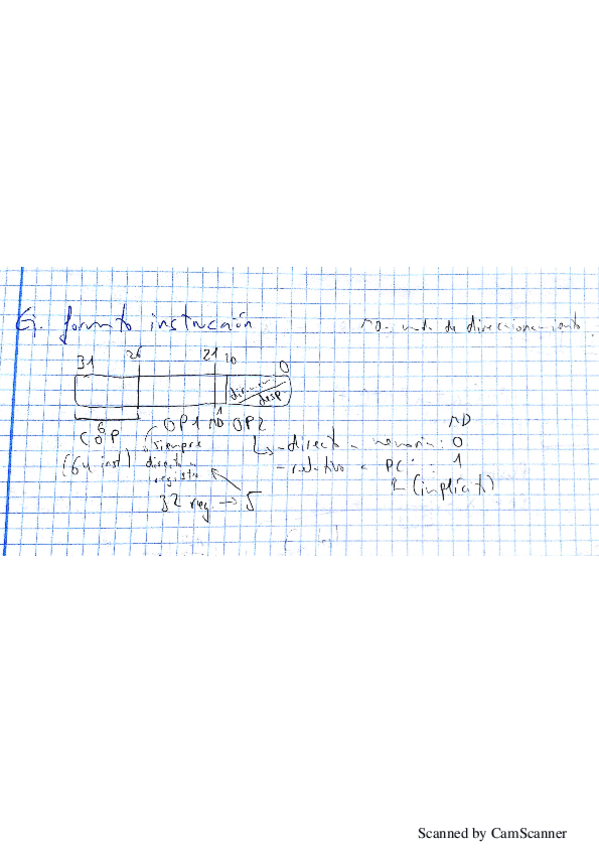 6. formato instrucción
MD - modo de direccionamiento
31 26 21 20 0
dir. mem / desp
6 1
COP OP1 MD OP2
(64 inst) siempre directo a registro
32 reg. → 5
MD
- directo a memoria: 0
- relativo a PC: 1
(implícito)
Scanned by CamScanner